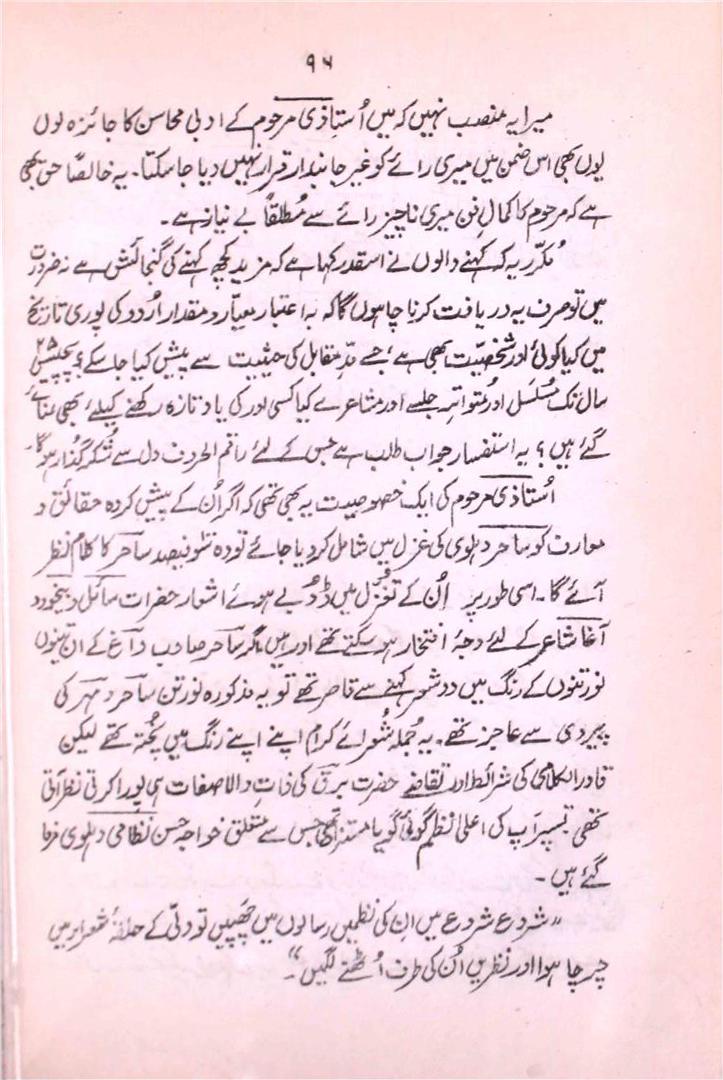 ۹۶
میرا یہ منصب نہیں کہ میں اُستاذی مرحوم کے ادبی محاسن کا جائزہ لوں
یوں بھی اس ضمن میں میری رائے کو غیر جانبدار قرار نہیں دیا جا سکتا۔ یہ خالصاً حق بھی
ہے کہ مرحوم کا کمالِ فن میری ناچیز رائے سے مُطلقاً بے نیاز ہے۔
مُکرّر یہ کہ کہنے والوں نے اسقدر کہا ہے کہ مزید کچھ کہنے کی گنجائش ہے نہ ضرورت
میں تو صرف یہ دریافت کرنا چاہوں گا کہ بہ اعتبار معیار و مقدار اُردو کی پوری تاریخ
میں کیا کوئی اور شخصیت بھی ہے، جسے مدِّ مقابل کی حیثیت سے پیش کیا جا سکے؟ پچیس ۲۵
سال تک مُسلسل اور مُتواتر جلسے اور مشاعرے کیا کسی اور کی یاد تازہ رکھنے کیلئے بھی منائے
گئے ہیں؟ یہ استفسار جواب طلب ہے جس کے لئے راقم الحروف دل سے شُکر گذار ہوگا۔
اُستاذی مرحوم کی ایک خصوصیت یہ بھی تھی کہ اگر اُن کے پیش کردہ حقائق و
معارف کو ساحر دہلوی کی غزل میں شامل کر دیا جائے تو وہ سَو فیصد ساحر کا کلام نظر
آئے گا۔ اسی طور پر اُن کے تغزّل میں ڈوبے ہوئے اشعار حضرات سائل و بیخود و
آغا شاعر کے لئے وجۂ افتخار ہو سکتے تھے اور ہیں مگر ساحر صاحب داغ کے ان تینوں
نورتنوں کے رنگ میں دو شعر کہنے سے قاصر تھے تو یہ مذکورہ نورتن ساحر و مہر کی
پیروی سے عاجز تھے۔ یہ جُملہ شُعرائے کرام اپنے اپنے رنگ میں پُختہ تھے لیکن
قادر الکلامی کی شرائط اور تقاضے حضرت برق کی ذاتِ والا صفات ہی پورا کرتی نظر آتی
تھی تسپر آپ کی اعلیٰ نظم گوئی گویا مستزاد تھی جس سے متعلق خواجہ حسن نظامی دہلوی فرما
گئے ہیں۔
”شروع شروع میں ان کی نظمیں رسالوں میں چھپیں تو دلّی کے حلقۂ شعراء میں
چرچا ہوا اور نظریں اُن کی طرف اُٹھنے لگیں“۔